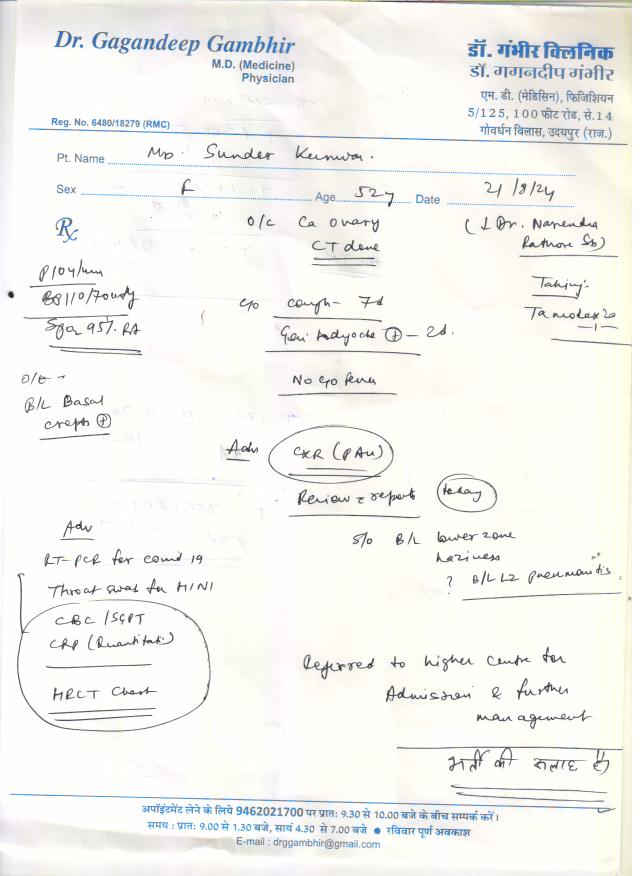 Dr. Gagandeep Gambhir
M.D. (Medicine)
Physician
Reg. No. 6480/18279 (RMC)
डॉ. गंभीर क्लिनिक
डॉ. गगनदीप गंभीर
एम. डी. (मेडिसिन), फिजिशियन
5/125, 100 फीट रोड, से.14
गोवर्धन विलास, उदयपुर (राज.)
Pt. Name Mrs. Sunder Kunwar.
Sex F Age 52y Date 21/8/24
Rx
O/C Ca ovary
CT done
( Dr. Narendra
Rathore Sb)
P104/min
BP110/70
Spo2 95% RA
Taking:
Tamodex 20
-1-
c/o cough - 7d
bodyache + - 2d.
No c/o fever
O/E →
B/L Basal
crepts +
Adv CXR (PAV)
Review c reports today
S/o B/L lower zone
haziness
? B/L LZ pneumonitis.
Adv
RT-PCR for covid 19
Throat swab for H1N1
CBC/SGPT
CRP (Quantitati)
HRCT Chest
Referred to higher centre for
Admission & further
management
भर्ती की सलाह है
अपॉइंटमेंट लेने के लिये 9462021700 पर प्रात: 9.30 से 10.00 बजे के बीच सम्पर्क करें।
समय : प्रात: 9.00 से 1.30 बजे, सायं 4.30 से 7.00 बजे ● रविवार पूर्ण अवकाश
E-mail : drggambhir@gmail.com